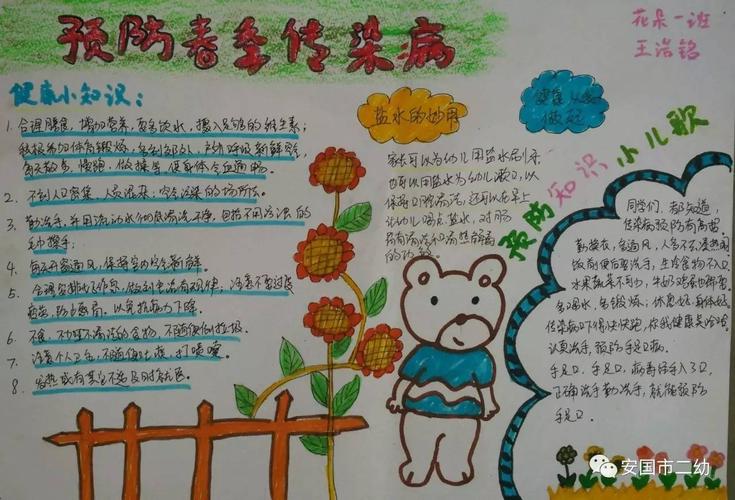 预防春季传染病
花朵一班
王浩铭
健康小知识：
1. 合理膳食，增加营养，要多饮水，摄入足够的维生素；
积极参加体育锻炼，多到郊外，户外呼吸新鲜空气，
每天散步，慢跑，做操等，使身体气血通畅。
2. 不到人口密集，人员混杂，空气污染的场所去。
3. 勤洗手，并用流动水彻底清洗干净，包括不用污浊的
毛巾擦手；
4. 每天开窗通风，保持室内空气新鲜。
5. 合理安排好作息，做到生活有规律，注意不要过度
疲劳，防止感冒，以免抗病力下降。
6. 不食，不加工不清洁的食物，不随便倒垃圾。
7. 注意个人卫生，不随便吐痰，打喷嚏。
8. 发热或有其它不适及时就医。
盐水的妙用
健康从我
做起
家长可以为幼儿用盐水洗
也可以用盐水为幼儿漱口，以
保持口腔清洁，还可以在早上
让幼儿喝点盐水，对肠
的功效。
预防知识小儿歌
同学们，都知道，
传染病预防有高招。
勤换衣，多通风，人多不去凑热闹
饭前便后要洗手，生冷食物不入口
水果蔬菜不可少，牛奶鸡蛋也都要。
多喝水，多锻炼，休息好，身体好。
传染病吓得快快跑，你我健康呈哈哈。
认真洗手，预防手足口病。
手足口，手足口，病毒经手入了口，
正确洗手勤洗手，就能预防
手足口。
安国市二幼